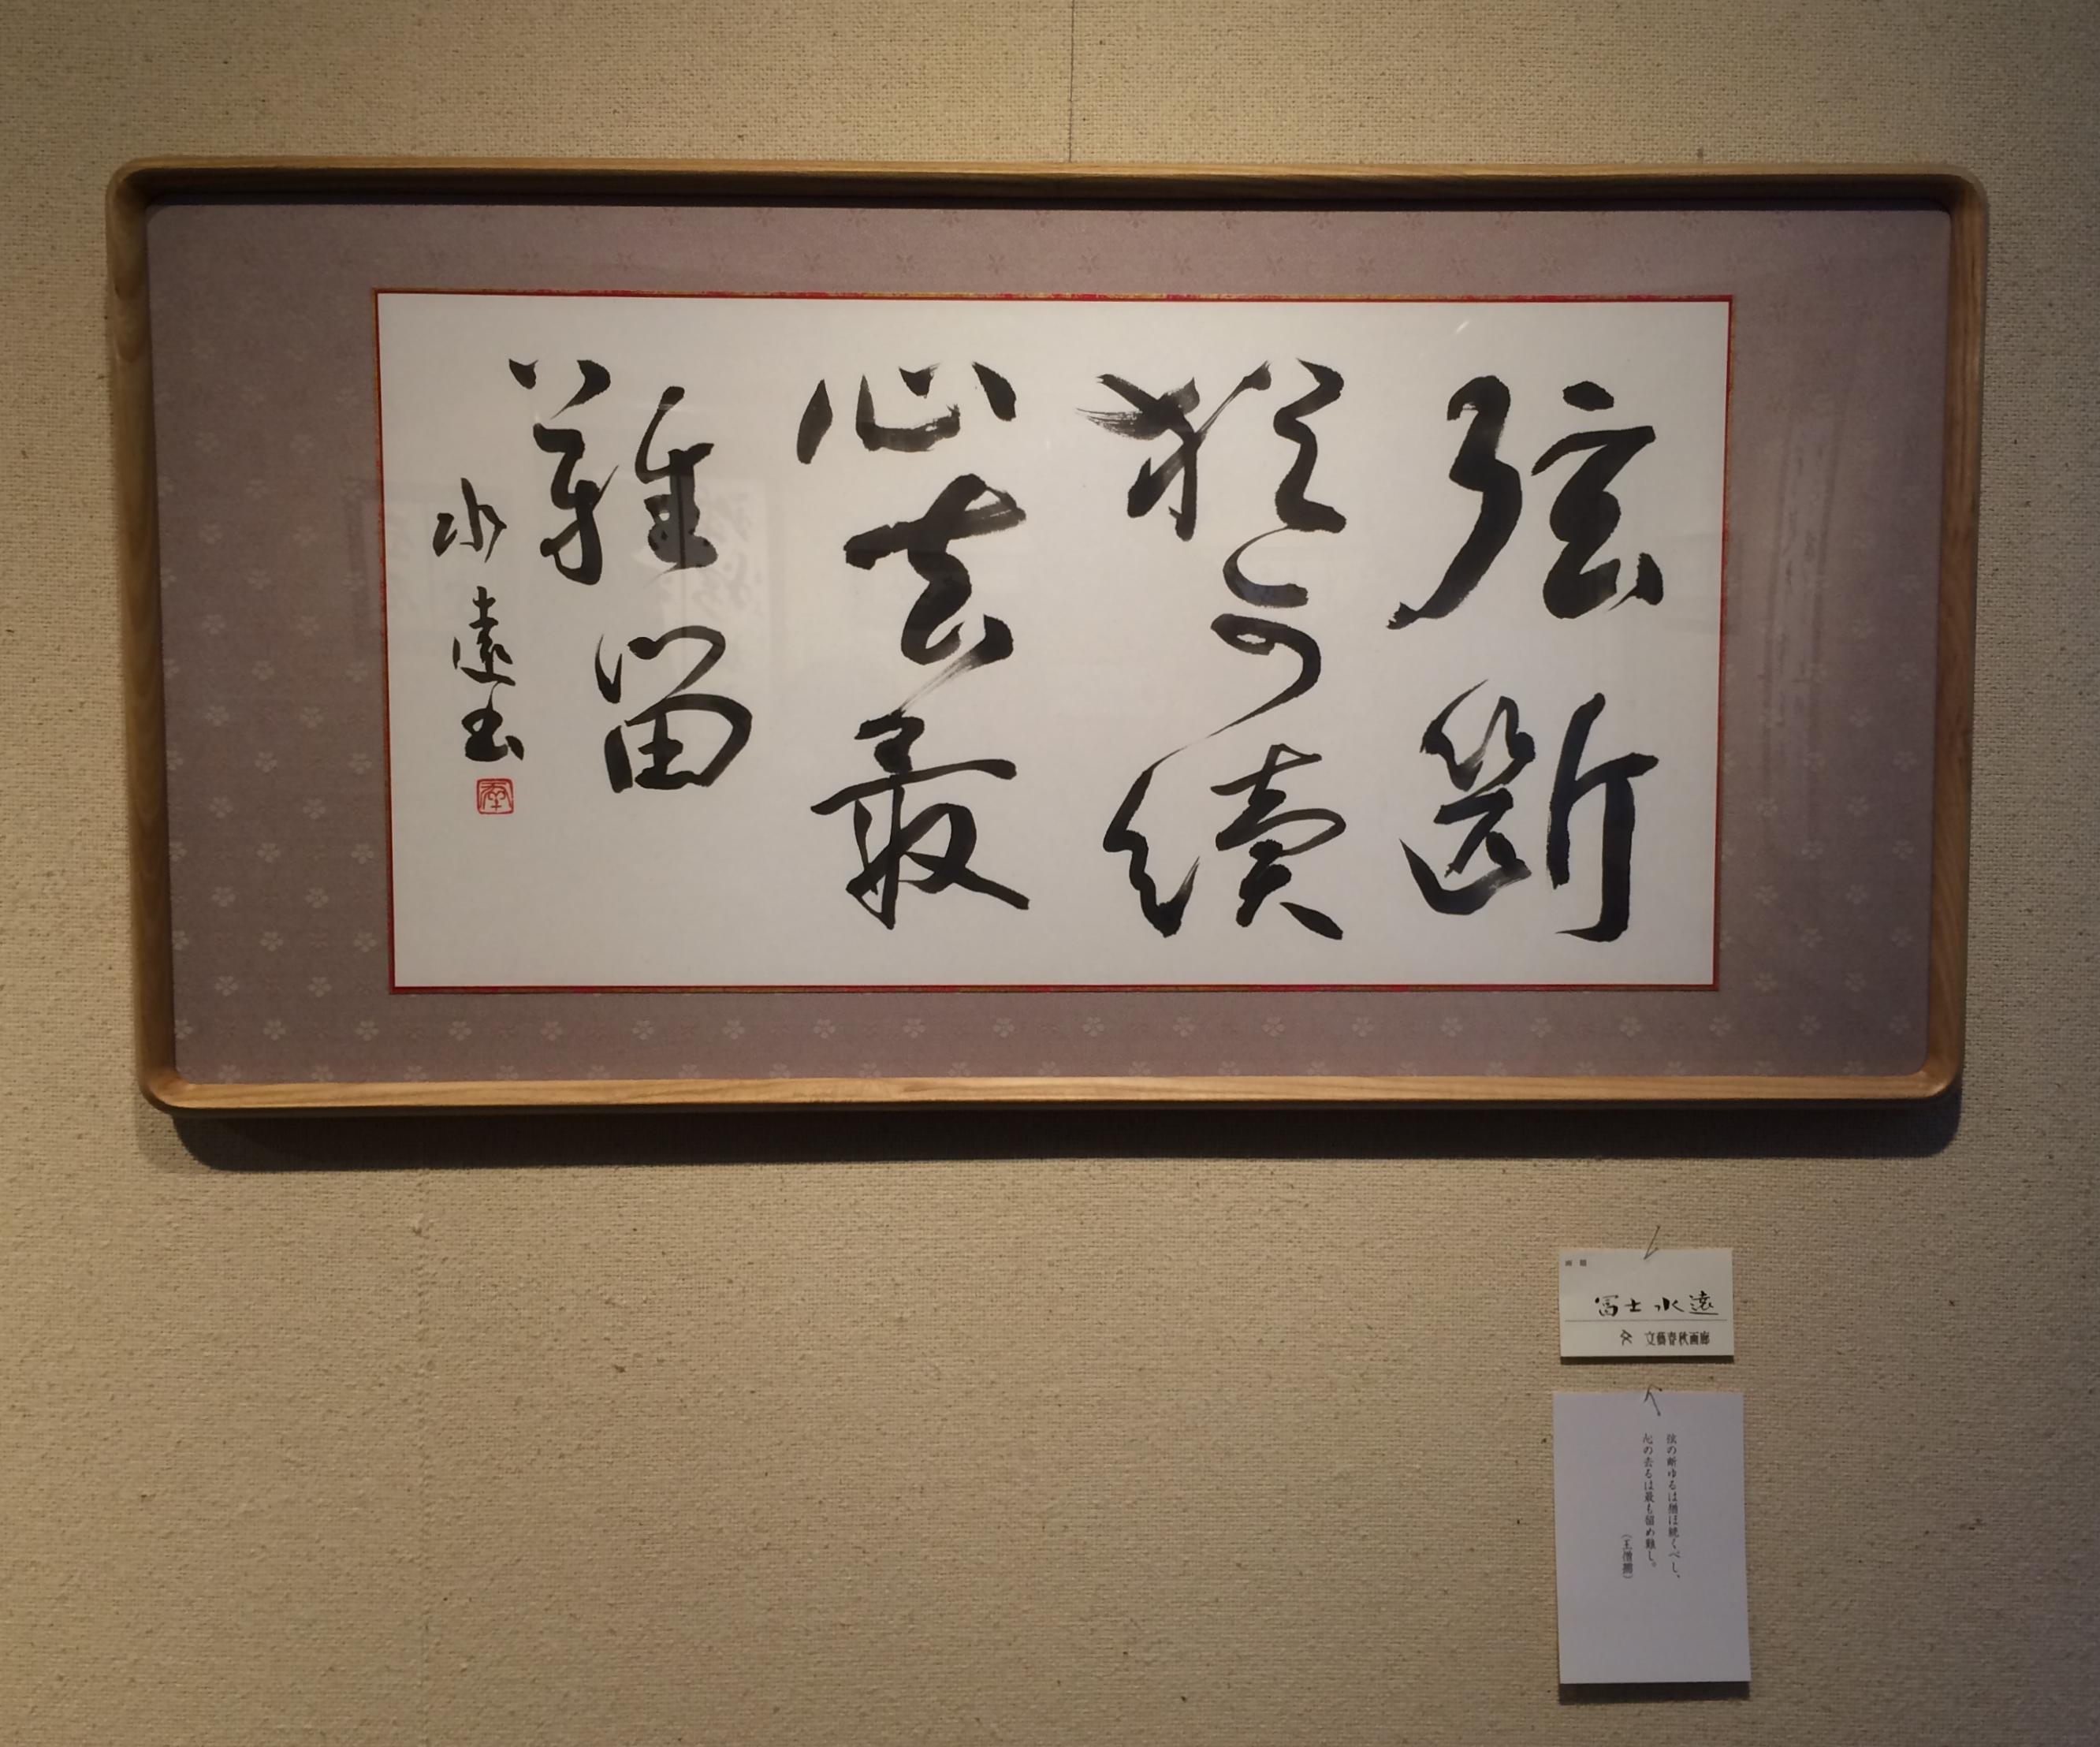 弦斷
猶可續
心去最
難留
水遠書
冨士水遠
文藝春秋画廊
弦の断ゆるは猶ほ続くべし、
心の去るは最も留め難し。
（王僧孺）